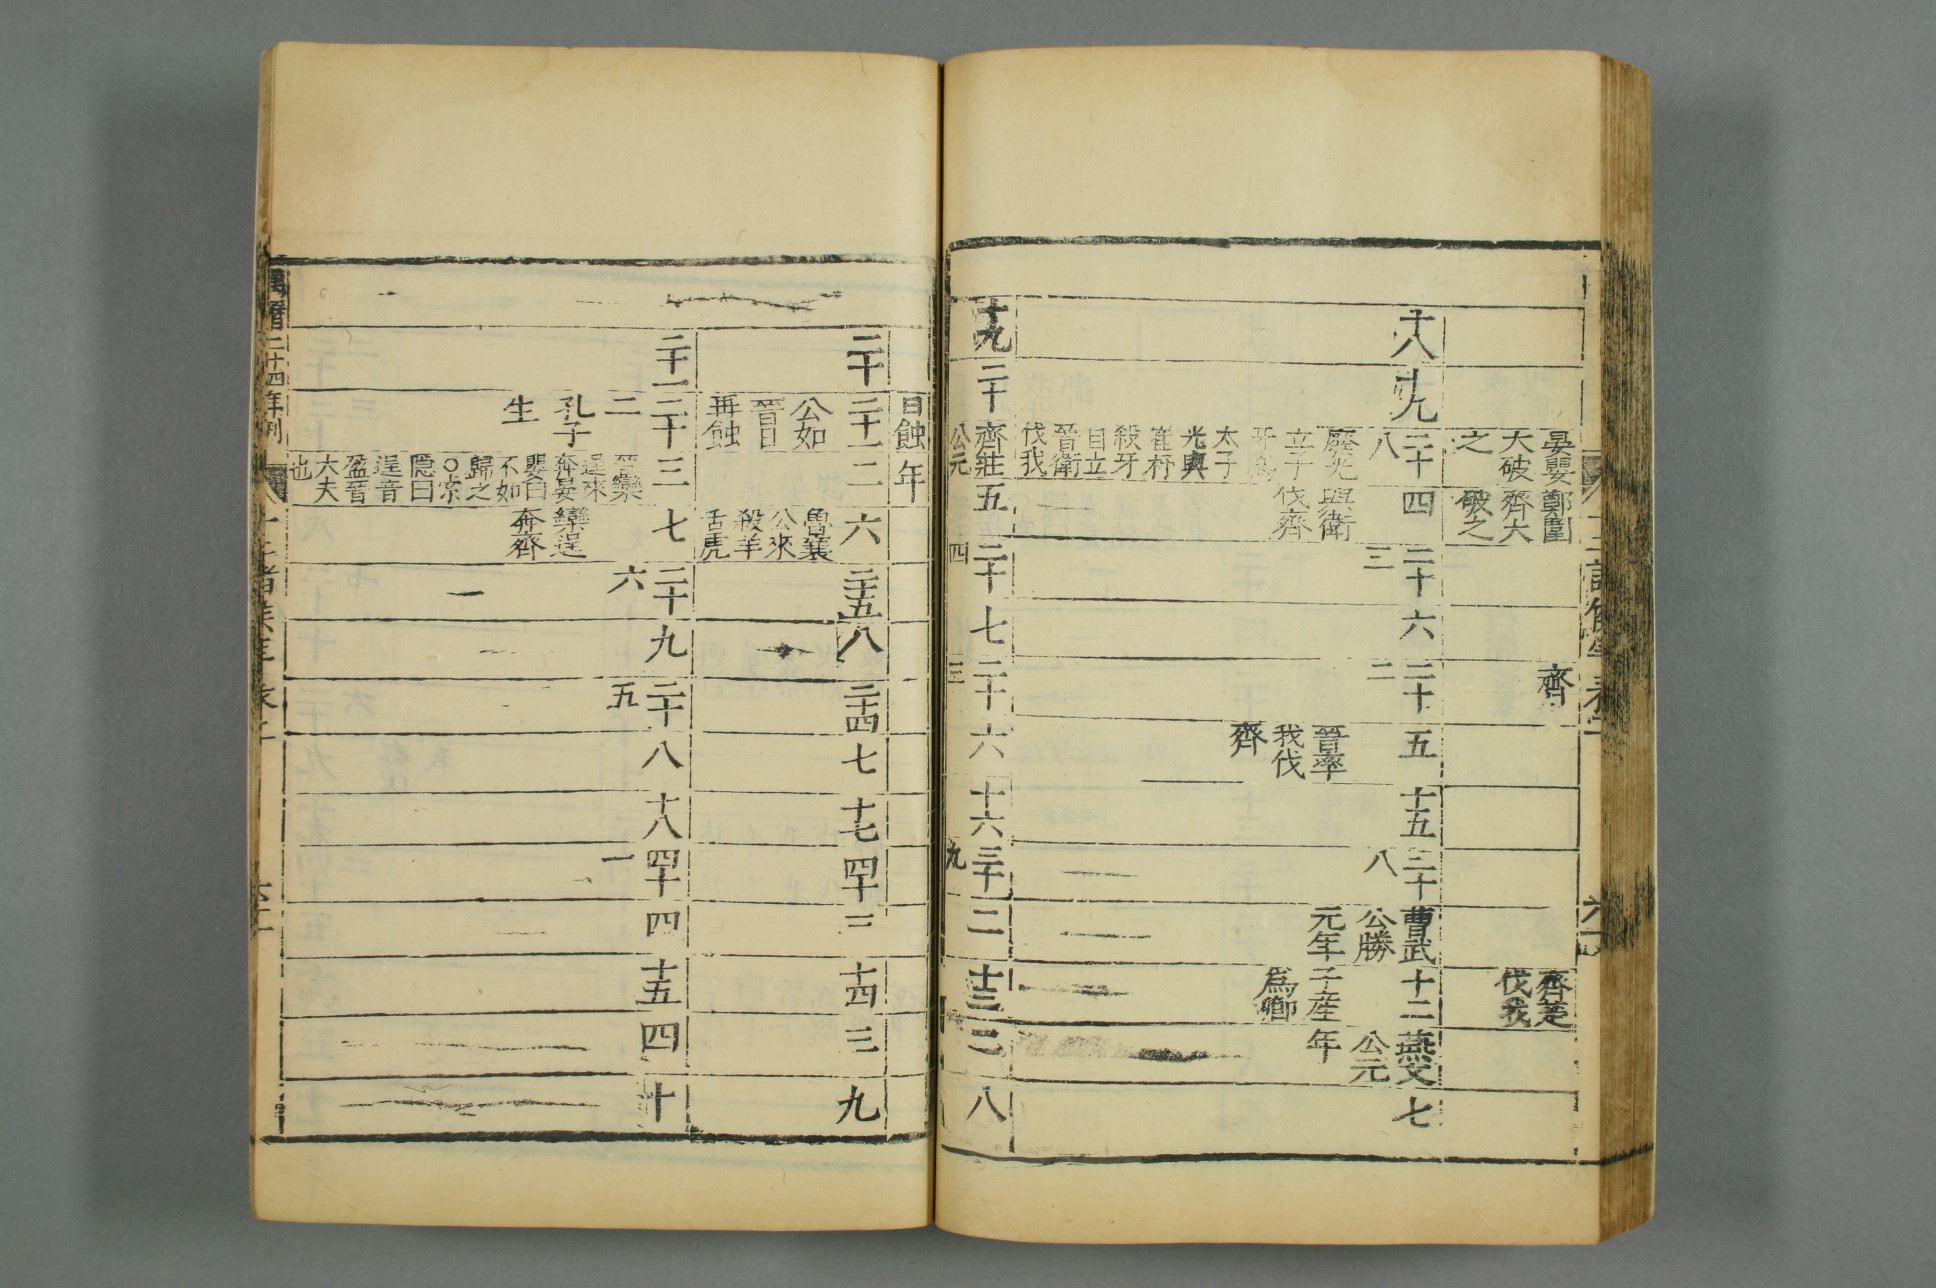 晏嬰
大破
之
鄭圍
齊大
破之
齊
齊芝
伐我
十八
十九
二十
八
廢光
立子
牙爲
太子
光與
崔杼
殺牙
自立
晉衛
伐我
四
與衛
伐齊
二十
三
六
二十
二
五
晉率
我伐
齊
十五
二十
八
曹武
公勝
元年
十二
子産
爲卿
燕文
公元
年
七
十九
二十
齊莊
公元
五
二十
四
七
二十
三
六
十六
二十
九
二
十三
二
八
年
日蝕
二十
二十一
公如
晉日
再蝕
二
六
魯襄
公來
殺羊
舌虎
二十五
八
二十四
七
十七
四十
三
十四
三
九
二十一
二十
二
孔子
生
三
晉欒
逞來
奔晏
嬰曰
不如
歸之
○索
隱曰
逞音
盈晉
大夫
也
七
欒逞
奔齊
二十
六
九
二十
五
八
十八
四十
一
四
十五
四
十
萬曆二十四年刊
十二諸侯年表二